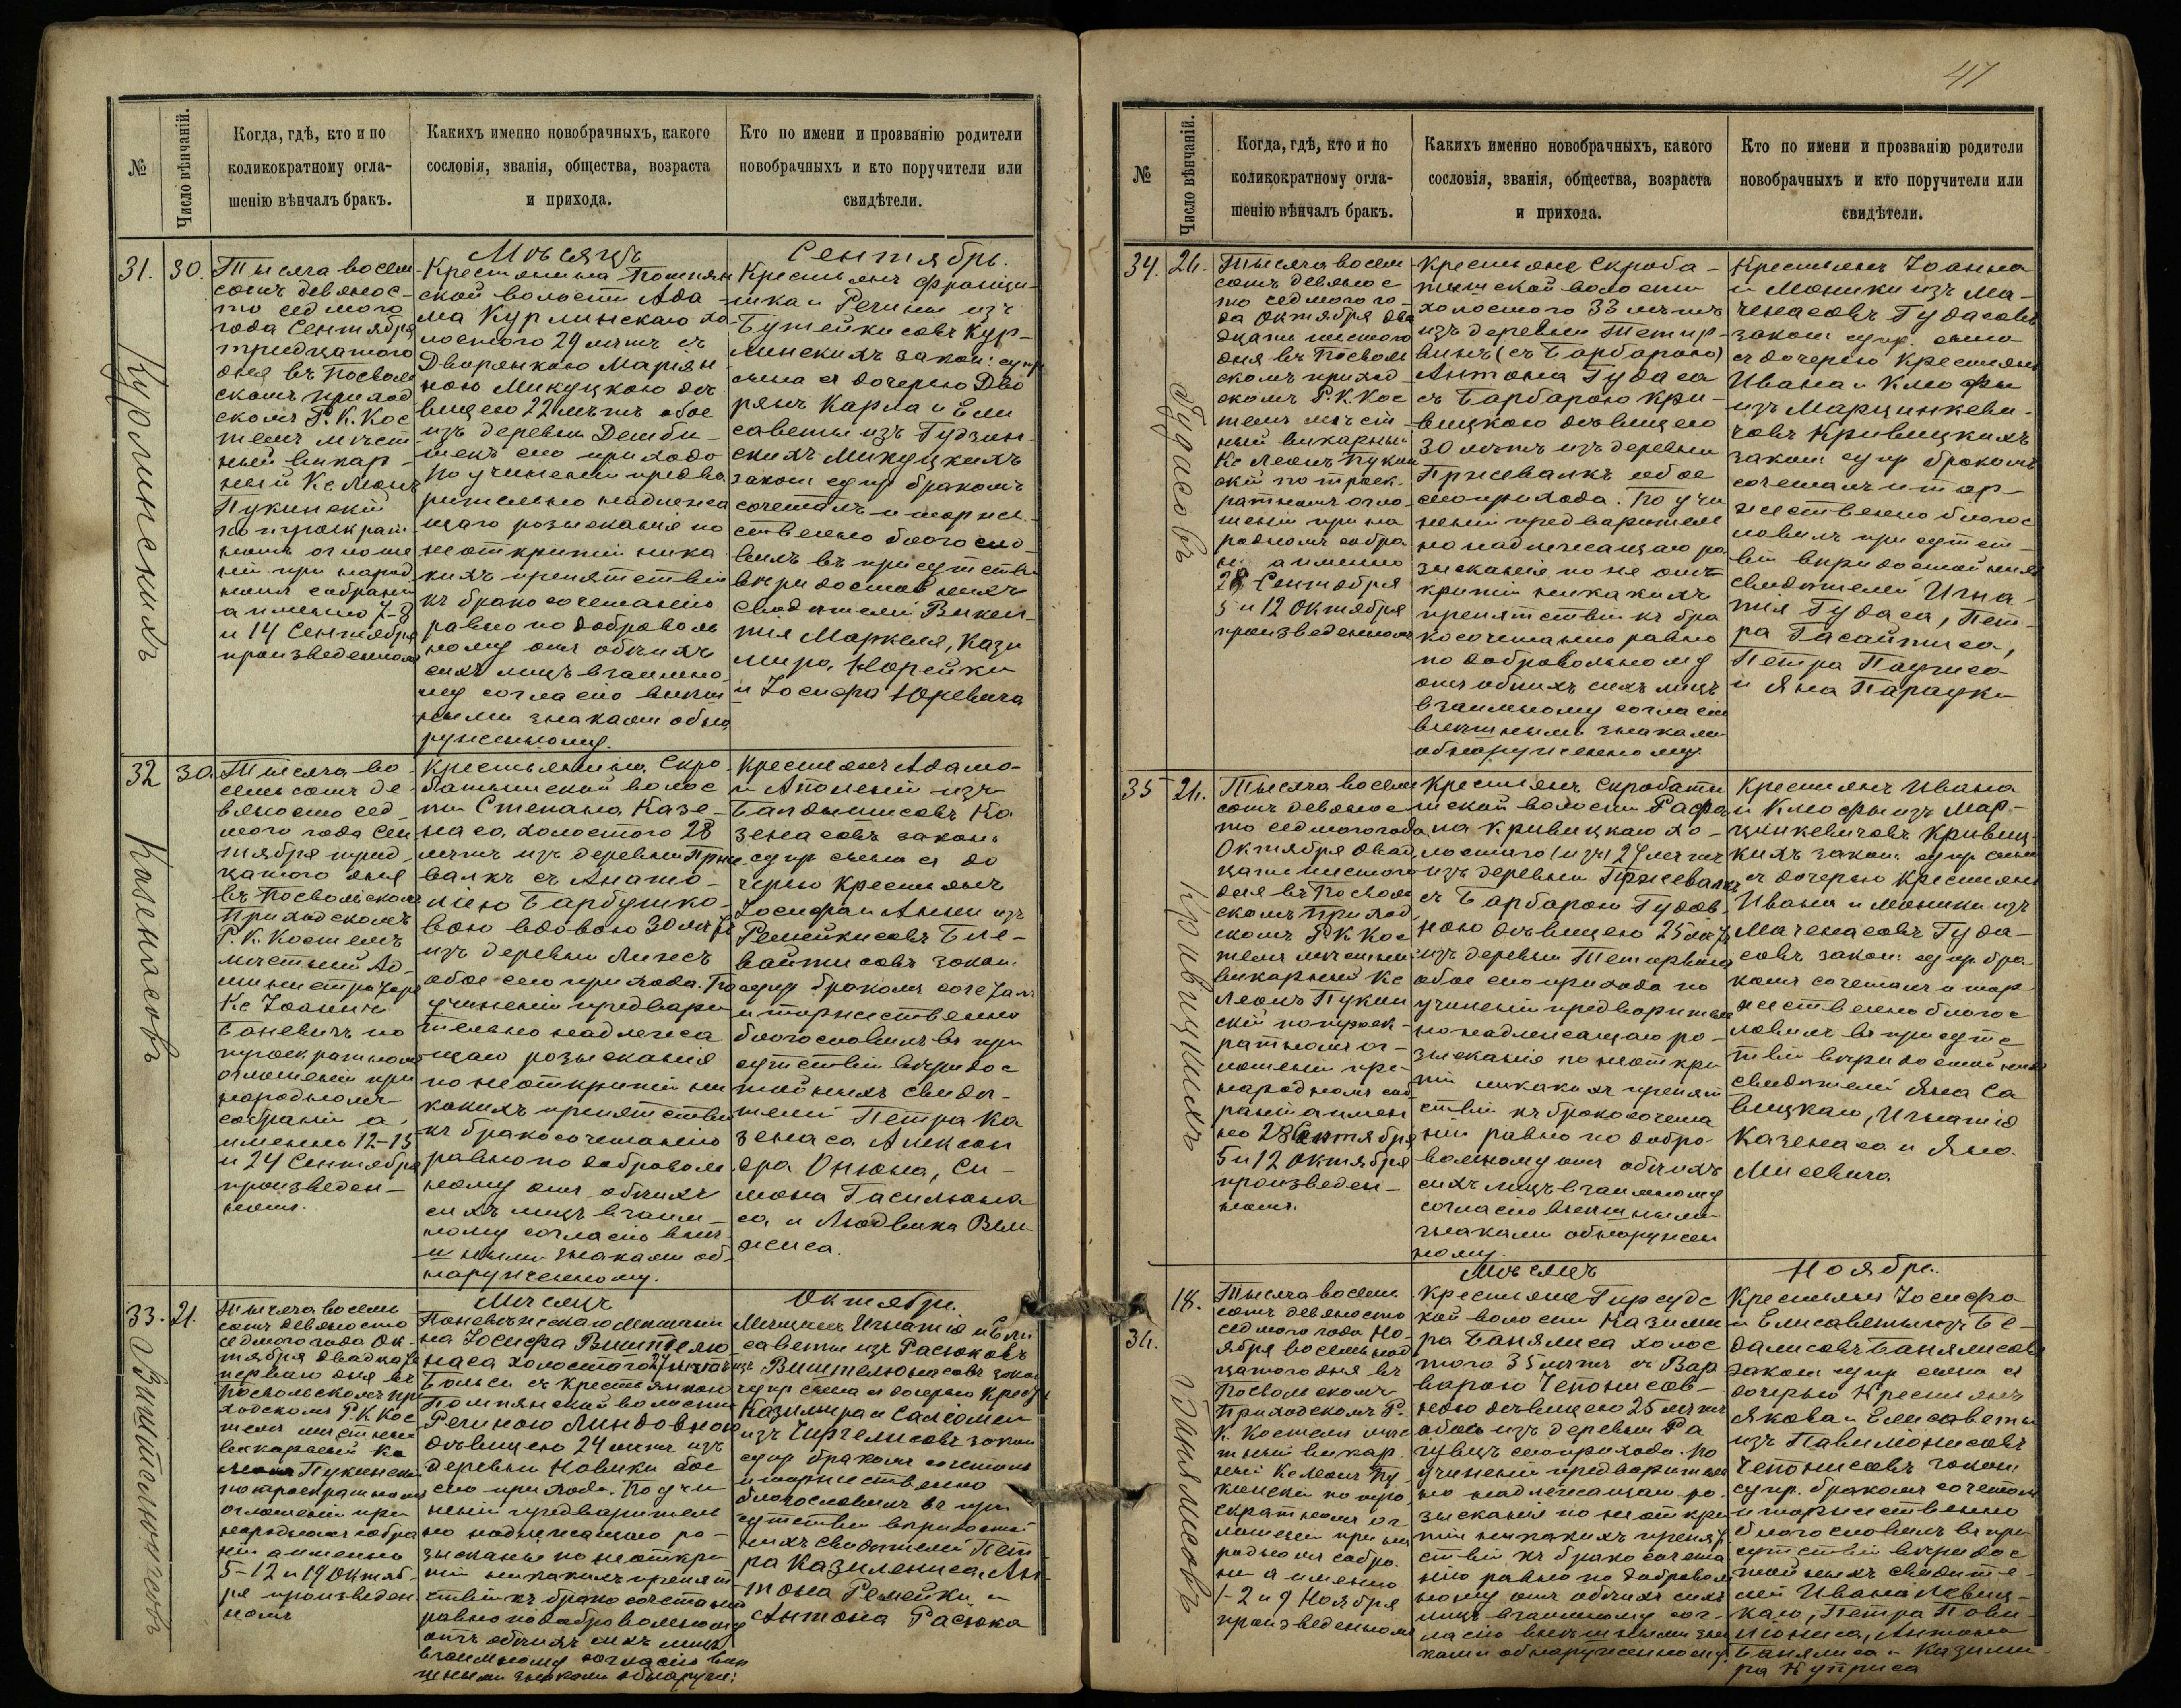 №
Число вѣнчаній.
Когда, гдѣ, кто и по
коликократному огла-
шенію вѣнчалъ бракъ.
Какихъ именно новобрачныхъ, какого
сословія, званія, общества, возраста
и прихода.
Кто по имени и прозванію родители
новобрачныхъ и кто поручители или
свидѣтели.
Мѣсяцъ
Сентябрь.
31.
30.
Курлинскихъ
Тысяча восем
сотъ девянос-
то седмого
года Сентября
тридцатого
дня въ Посволь
скомъ приход
скомъ Р. К. Кос
телѣ мѣст
ный викар-
ный Кс Леонъ
Пукинскій
по троекрат
номъ оглоше
ніи при народ
номъ собраніи
а именно 7-8
и 14 Сентября
произведенномъ
Крестьянина Помпян
ской волости Ада
ма Курлинскаго хо
лостого 29 лѣтъ съ
Дворянкою Маріян
ною Микуцкою дѣ
вицею 22 лѣтъ обое
изъ деревни
сего приходо
По учиненіи предва
рительно надлежа
щаго розысканія по
неоткрытіи ника
кихъ препятствій
къ бракосочетанію
равно по доброволь
ному отъ обѣихъ
сихъ лицъ взаимно
му согласію внѣш
ными знаками обна
руженному.
Крестьянъ Франци-
шка и Регины изъ
Бутейкисовъ Кур-
линскихъ закон: супр
сына съ дочерью Дво
рянъ Карла и Ели
саветы изъ Гудзин-
скихъ Микуцкихъ
закон супр бракомъ
сочеталъ и торжес
ственно благосло-
вилъ въ присутствіи
вѣридостойныхъ
свидѣтелей Викен-
тія Маркеля, Кази
мира Норейки
и Іосифа Юревича
32
30.
Казенасовъ
Тысяча во
семьсотъ де
вяносто сед
мого года Сен
тября трид
цатого дня
въ Посвольскомъ
Приходскомъ
Р. К. Костелѣ
мѣстный Ад-
министраторъ
Кс Іоаннъ
Баневичъ по
троекратномъ
оглошеніи при
народномъ
собраніи а
именно 12-13
и 24 Сентября
произведен-
номъ.
Крестьянина Скро
батышской волос
ти Степана Казе-
наса холостого 28
лѣтъ изъ деревни Прше
валкъ съ Анато-
ліею Барбушко-
вою вдовою 30 лѣтъ
изъ деревни
обое сего прихода. По
учиненіи предвари
тельно надлежа
щаго розысканія
по неоткрытіи ни
какихъ препятствій
къ бракосочетанію
равно по доброволь
ному отъ обѣихъ
сихъ лицъ взаим-
ному согласію внѣ
шными знаками об-
наруженному.
Крестьянъ Адама
и Аполоніи изъ
Балдышисовъ Ка
зенасовъ закон:
супр сына съ до
черью Крестьянъ
Іосифа и Анны изъ
Ремейкисовъ Бле-
вайтисовъ закон.
супр бракомъ сочеталъ
и торжественно
благословилъ въ при
сутствіи вѣридос
тойныхъ свидѣ-
телей Петра Ка
зенаса Алексан
дра Онюна, Си-
мона Гасильюна
са и Людвика Вил-
жиса.
Мѣсяцъ
Октябрь.
33.
21.
Виштелюнасовъ
Тысяча восемь
сотъ девяносто
седмого года Ок-
тября двадцать
перваго дня въ
Посвольскомъ При
ходскомъ Р. К Кос
телѣ мѣстный
викарный Кс
Леонъ Пукинскій
по троекратномъ
оглошеніи при
народномъ собра
ніи а именно
5-12 и 19 Октяб-
ря произведен
номъ
Поневѣжскаго мѣщани
на Іосифа Виштелю
наса холостого 27 лѣтъ изъ
съ Крестьянкою
Помпянской волости
Региною Линдовною
дѣвицею 24 лѣтъ изъ
деревни Новики обое
сего прихода. По учи
неніи предваритель
но надлежащаго ро-
зысканія по неоткры
тіи никакихъ препят
ствій къ бракосочетанію
равно по добровольному
отъ обѣихъ сихъ лицъ
взаимному согласію внѣ
шными знаками обнаруж:
Мѣщанъ Игнатія и Ели
саветы изъ Расюковъ
Виштелюнасовъ закон
супр сына съ дочерью Крестьянъ
Казимира и Саломеи
изъ Чиргелисовъ закон
супр бракомъ сочеталъ
и торжественно
благословилъ въ при
сутствіи вѣридостой
ныхъ свидѣтелей Пет
ра Казилениса, Ан-
тона Ремейки и
Антона Расюка
47
№
Число вѣнчаній.
Когда, гдѣ, кто и по
коликократному огла-
шенію вѣнчалъ бракъ.
Какихъ именно новобрачныхъ, какого
сословія, званія, общества, возраста
и прихода.
Кто по имени и прозванію родители
новобрачныхъ и кто поручители или
свидѣтели.
34.
26.
Гудасовъ
Тысяча восем
сотъ девянос
то седмого го-
да Октября два
дцать шестого
дня въ Посволь
скомъ приход
скомъ Р. К. Кос
телѣ мѣст
ный викарный
Кс Леонъ Пукин
скій по троек-
ратномъ огло-
шеніи при на
родномъ собра
ніи а именно
28 Сентября
5 и 12 Октября
произведенномъ
Крестьяне Скроба-
тышской волости
холостого 33 лѣтъ
изъ деревни Тетир-
винъ (съ Барбарою)
Антона Гудаса
съ Барбарою Кри-
вицкою дѣвицею
30 лѣтъ изъ деревни
Пршевалкъ обое
сего прихода. По учи
неніи предваритель
но надлежащаго ро
зысканія по не от
крытіи никакихъ
препятствій къ бра
косочетанію равно
по добровольному
отъ обѣихъ сихъ лицъ
взаимному согласію
внѣшными знаками
обнаруженному.
Крестьянъ Іоанна
и Моники изъ Ма-
ченасовъ Гудасовъ
закон супр. сына
съ дочерью Крестьянъ
Ивана и Клюфы
изъ Марцинкеви-
човъ Кривицкихъ
закон супр бракомъ
сочеталъ и тор-
жественно благос
ловилъ при сутст-
віи вѣридостойныхъ
свидѣтелей Игна-
тія Гудаса, Пет-
ра Гасайтиса,
Петра Паужиса
и Яна Парауки
35
26.
Кривицкихъ
Тысяча восем
сотъ девянос
то седмого года
Октября двад
цать шестого
дня въ Посволь
скомъ Приход
скомъ Р К Кос
телѣ мѣстный
викарный Кс
Леонъ Пукин
скій по троек-
ратномъ ог-
лошеніи при
народномъ соб
раніи а имен
но 28 Сентября
5 и 12 Октября
произведен-
номъ.
Крестьянъ Скробаты
шской волости Рафа
ла Кривицкаго хо-
лостого 27 лѣтъ
изъ деревни Пршевалкъ
съ Барбарою Гудов-
ною дѣвицею 25 лѣтъ
изъ деревни Тетирвинъ
обое сего прихода по
учиненіи предваритель
но надлежащаго ро-
зысканія по неоткры
тіи никакихъ препят
ствій къ бракосочета
нію равно по добро-
вольному отъ обѣихъ
сихъ лицъ взаимному
согласію внѣшными
знаками обнаружен
ному.
Крестьянъ Ивана
и Клюфы изъ Мар-
цинкевичовъ Кривиц-
кихъ закон: супр сына
съ дочерью Крестьянъ
Ивана и Моники изъ
Маченасовъ Гуда-
совъ закон: супр бра
комъ сочеталъ и тор
жественно благос
ловилъ въ присутс
твіи вѣридостойныхъ
свидѣтелей Яна Са
вицкаго, Игнатія
Казенаса и Яна
Мисевича
Мѣсяцъ
Ноябрь.
36.
18.
Банялисовъ
Тысяча восемь
сотъ девяносто
седмого года Но-
ября восемьнад
цатого дня въ
Посвольскомъ
Приходскомъ Р.
К. Костелѣ мѣс
тный викар
ный Кс Леонъ Пу
кинскій по тро
екратномъ ог
лошеніи при на
родномъ собра
ніи а именно
1-2 и 9 Ноября
произведенномъ
Крестьяне Гирсудс
кой волости Казими
ра Банялиса холос
того 35 лѣтъ съ Вар
варою Чепонисов-
ною дѣвицею 25 лѣтъ
обое изъ деревни
сего прихода. По
учиненіи предваритель
но надлежащаго ро-
зысканія по неоткры
тіи никакихъ препят
ствій къ бракосочета
нію равно по доброволь
ному отъ обѣихъ сихъ
лицъ взаимному сог-
ласію внѣшными зна
ками обнаруженному.
Крестьянъ Іосифа
и Елисаветы изъ Бе-
далисовъ Банялисовъ
закон супр сына съ
дочерью Крестьянъ
Якова и Елисаветы
изъ Павилонисовъ
Чепонисовъ закон
супр. бракомъ сочеталъ
и торжественно
благословилъ въ при
сутствіи вѣридос
тойныхъ свидѣте-
лей Ивана Левиц-
каго, Петра Пови-
лониса, Антона
Банялиса и Казими-
ра Куприса